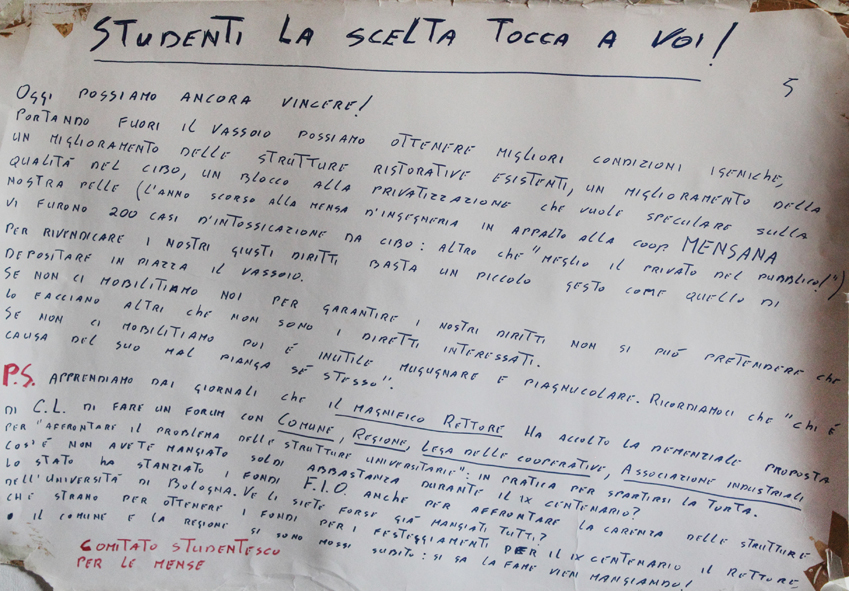 STUDENTI LA SCELTA TOCCA A VOI!
5
OGGI POSSIAMO ANCORA VINCERE!
PORTANDO FUORI IL VASSOIO POSSIAMO OTTENERE MIGLIORI CONDIZIONI IGENICHE,
UN MIGLIORAMENTO DELLE STRUTTURE RISTORATIVE ESISTENTI, UN MIGLIORAMENTO DELLA
QUALITÀ DEL CIBO, UN BLOCCO ALLA PRIVATIZZAZIONE CHE VUOLE SPECULARE SULLA
NOSTRA PELLE (L'ANNO SCORSO ALLA MENSA D'INGEGNERIA IN APPALTO ALLA COOP MENSANA
VI FURONO 200 CASI D'INTOSSICAZIONE DA CIBO: ALTRO CHE "MEGLIO IL PRIVATO DEL PUBBLICO!")
PER RIVENDICARE I NOSTRI GIUSTI DIRITTI BASTA UN PICCOLO GESTO COME QUELLO DI
DEPOSITARE IN PIAZZA IL VASSOIO.
SE NON CI MOBILITIAMO NOI PER GARANTIRE I NOSTRI DIRITTI NON SI PUÓ PRETENDERE CHE
LO FACCIANO ALTRI CHE NON SONO I DIRETTI INTERESSATI.
SE NON CI MOBILITIAMO POI É INUTILE MUGUGNARE E PIAGNUCOLARE. RICORDIAMOCI CHE "CHI É
CAUSA DEL SUO MAL PIANGA SÉ STESSO".
P.S. APPRENDIAMO DAI GIORNALI CHE IL MAGNIFICO RETTORE HA ACCOLTO LA DEMENZIALE PROPOSTA
DI C.L. DI FARE UN FORUM CON COMUNE, REGIONE, LEGA DELLE COOPERATIVE, ASSOCIAZIONE INDUSTRIALI
PER "AFFRONTARE IL PROBLEMA DELLE STRUTTURE UNIVERSITARIE": IN PRATICA PER SPARTIRSI LA TORTA.
COS'É NON AVETE MANGIATO SOLDI ABBASTANZA DURANTE IL IX CENTENARIO?
LO STATO HA STANZIATO I FONDI F.I.O. ANCHE PER AFFRONTARE LA CARENZA DELLE STRUTTURE
DELL'UNIVERSITÁ DI BOLOGNA. VE LI SIETE FORSE GIÁ MANGIATI TUTTI?
CHE STRANO PER OTTENERE I FONDI PER I FESTEGGIAMENTI PER IL IX CENTENARIO IL RETTORE,
IL COMUNE E LA REGIONE SI SONO MOSSI SUBITO: SI SA LA FAME VIEN MANGIANDO!
COMITATO STUDENTESCO
PER LE MENSE